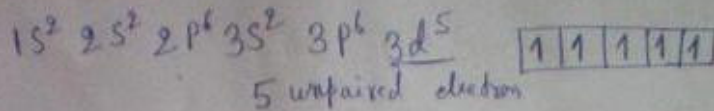 1s² 2s² 2p⁶ 3s² 3p⁶ 3d⁵ 1 1 1 1 1
5 unpaired electron